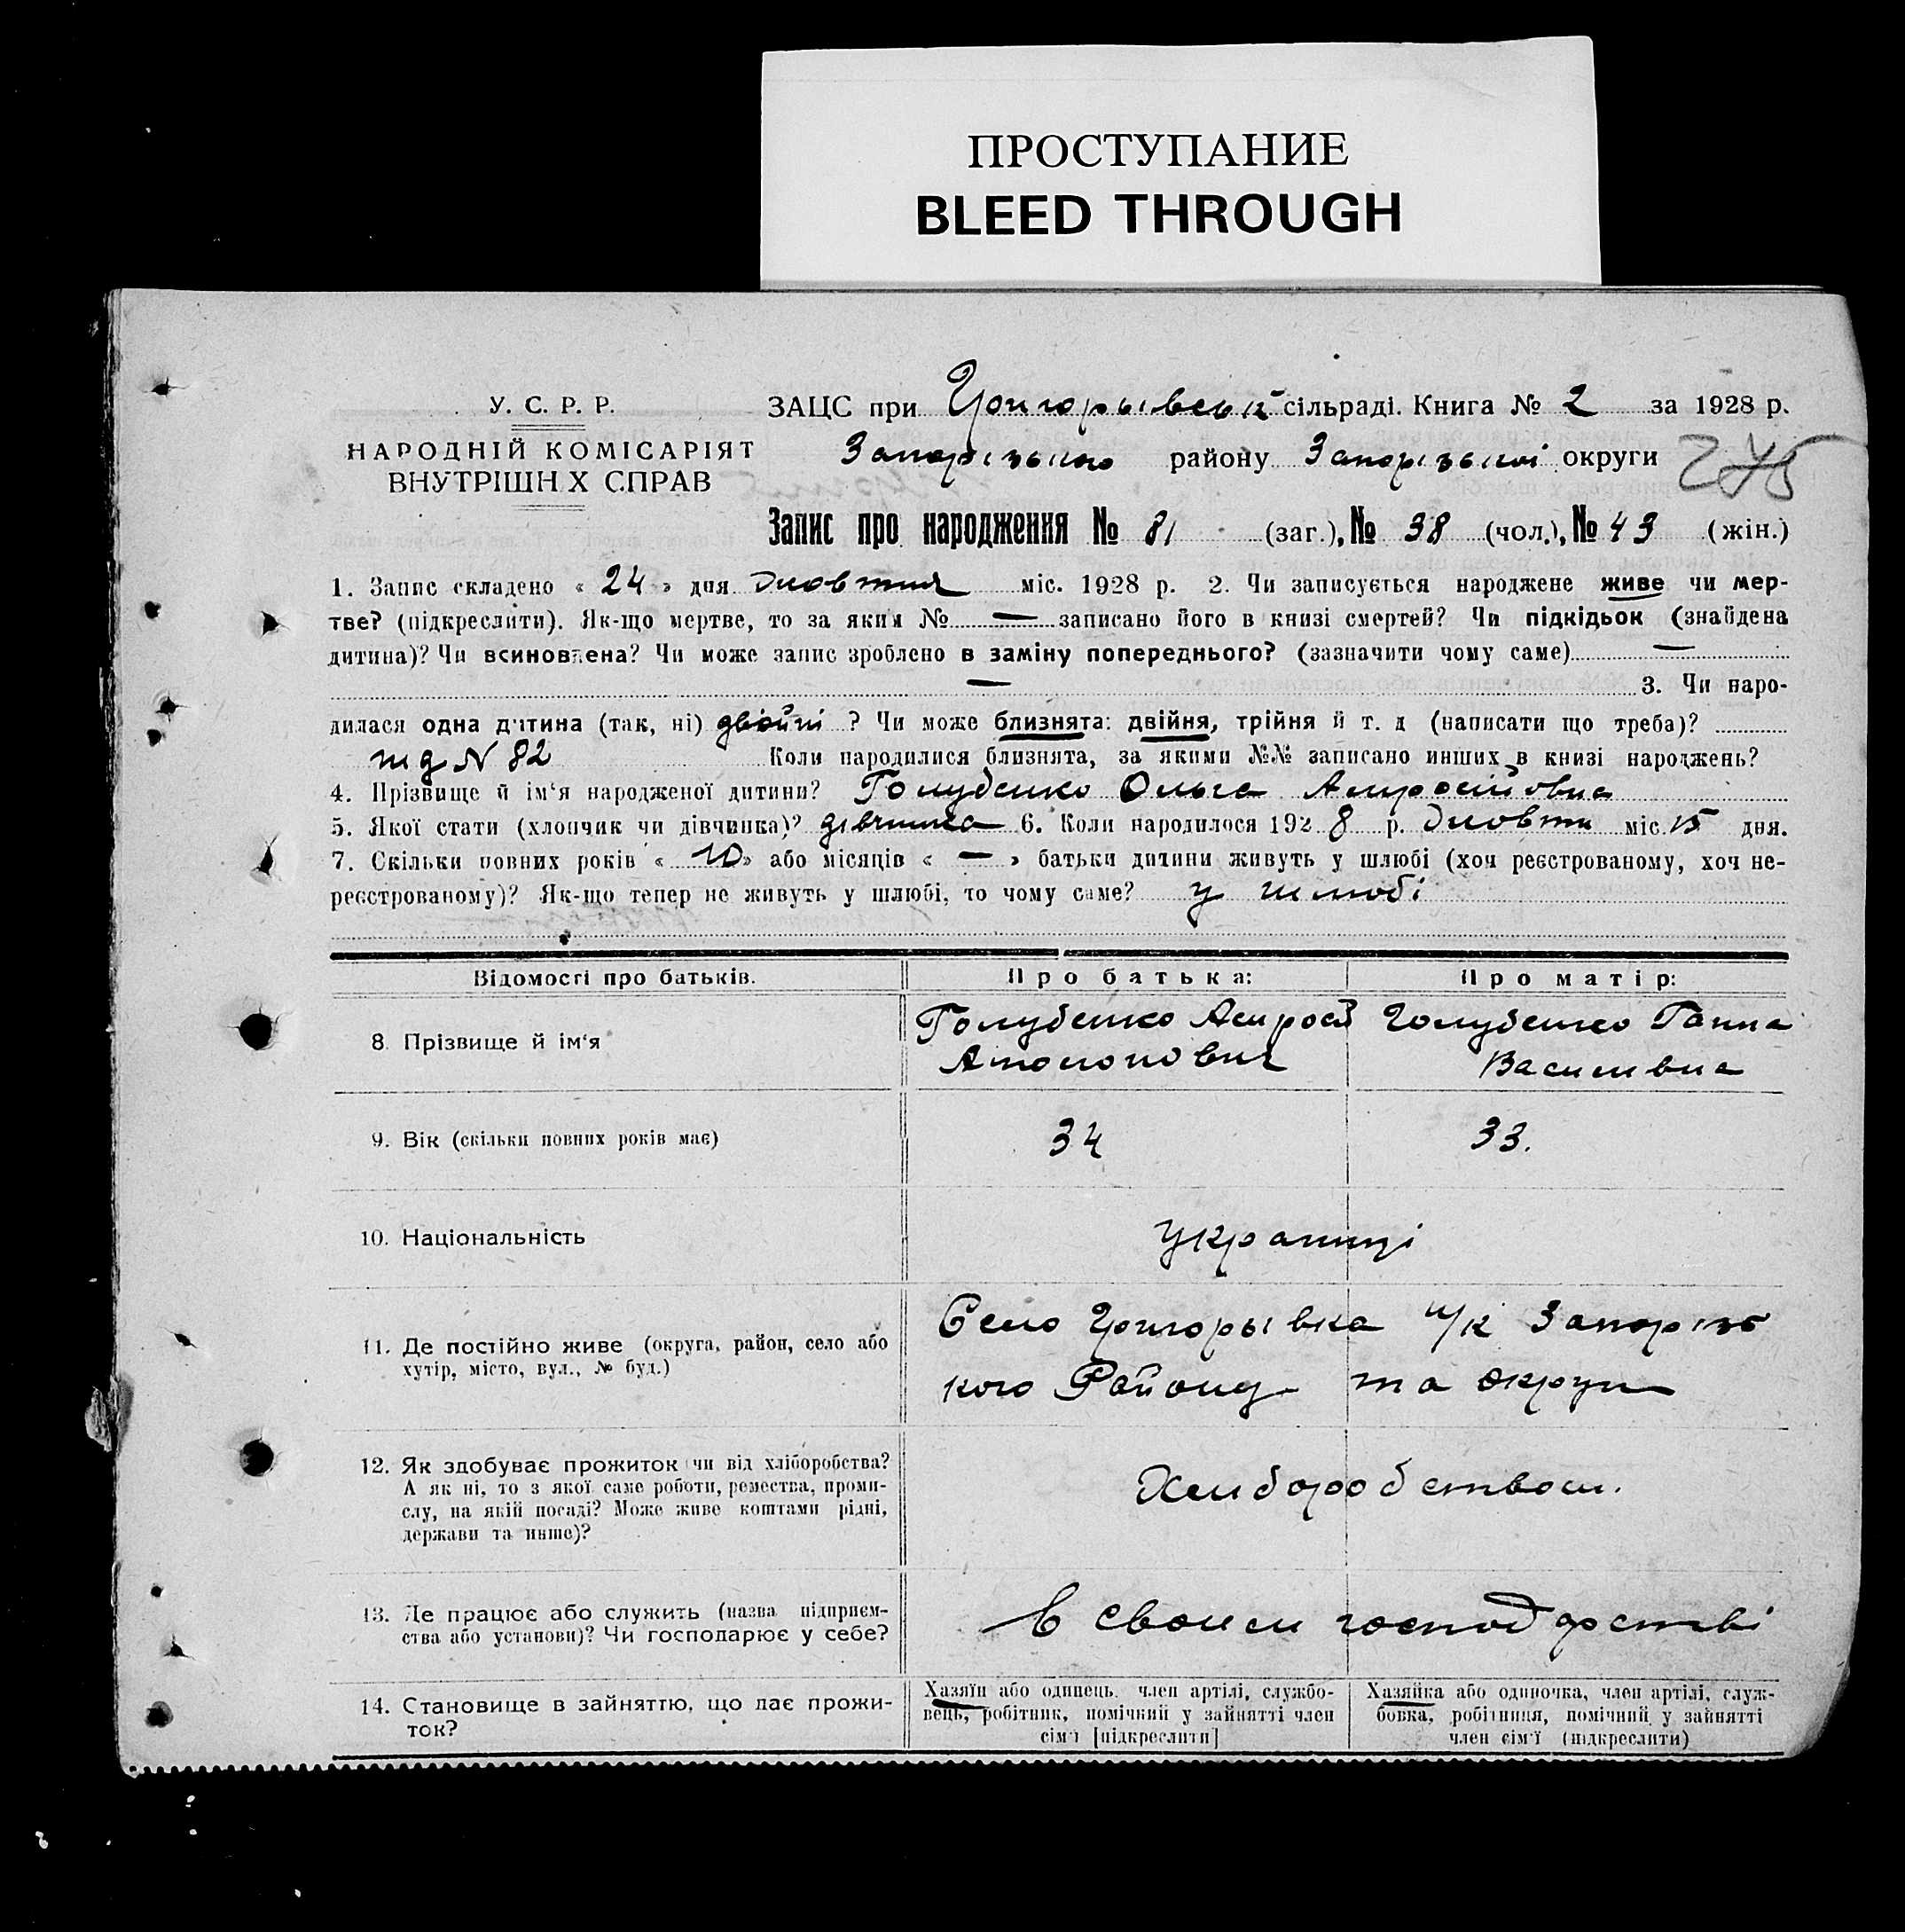 ПРОСТУПАНИЕ
BLEED THROUGH
У. С. Р. Р.
НАРОДНІЙ КОМІСАРІЯТ
ВНУТРІШН Х СПРАВ
ЗАЦС при Григорьівськ сільраді. Книга № 2 за 1928 р.
Запорізького району Запорізької округи 275
Запис про народження № 81 (заг.), № 38 (чол.), № 43 (жін.)
1. Запис складено « 24 » дня Жовтня міс. 1928 р. 2. Чи записується народжене живе чи мер-
тве? (підкреслити). Як-що мертве, то за яким № — записано його в книзі смертей? Чи підкідьок (знайдена
дитина)? Чи всиновлена? Чи може запис зроблено в заміну попереднього? (зазначити чому саме) —
— 3. Чи наро-
дилася одна дитина (так, ні) двойні ? Чи може близнята: двійня, трійня й т. д (написати що треба)?
N 82 Коли народилися близнята, за якими №№ записано инших в книзі народжень?
4. Прізвище й ім'я народженої дитини? Голубенко Ольга Амросійовна
5. Якої стати (хлопчик чи дівчинка)? дівчинка 6. Коли народилося 192 8 р. Жовтн міс. 15 дня.
7. Скільки повних років « 10 » або місяців « — » батьки дитини живуть у шлюбі (хоч реєстрованому, хоч не-
реєстрованому)? Як-що тепер не живуть у шлюбі, то чому саме? у шлюбі
Відомості про батьків.
Про батька:
Про матір:
8. Прізвище й ім'я
Голубенко Амросій
Голубенко Ганна
Василивна
9. Вік (скільки повних років має)
34
33.
10. Національність
Українці
11. Де постійно живе (округа, район, село або
хутір, місто, вул., № буд.)
Село Григорьівка Запорізь
кого Району та округи
12. Як здобуває прожиток (чи від хліборобства?
А як ні, то з якої саме роботи, ремества, проми-
слу, на якій посаді? Може живе коштами рідні,
держави та инше)?
Хлиборобством.
13. Де працює або служить (назва підприєм-
ства або установи)? Чи господарює у себе?
В своїм господарстві
14. Становище в зайняттю, що дає прожи-
ток?
Хазяїн або одинець, член артілі, службо-
вець, робітник, помічний у зайнятті член
сім'ї [підкреслити]
Хазяйка або одиночка, член артілі, служ-
бовка, робітниця, помічний у зайнятті
член сім'ї (підкреслити)